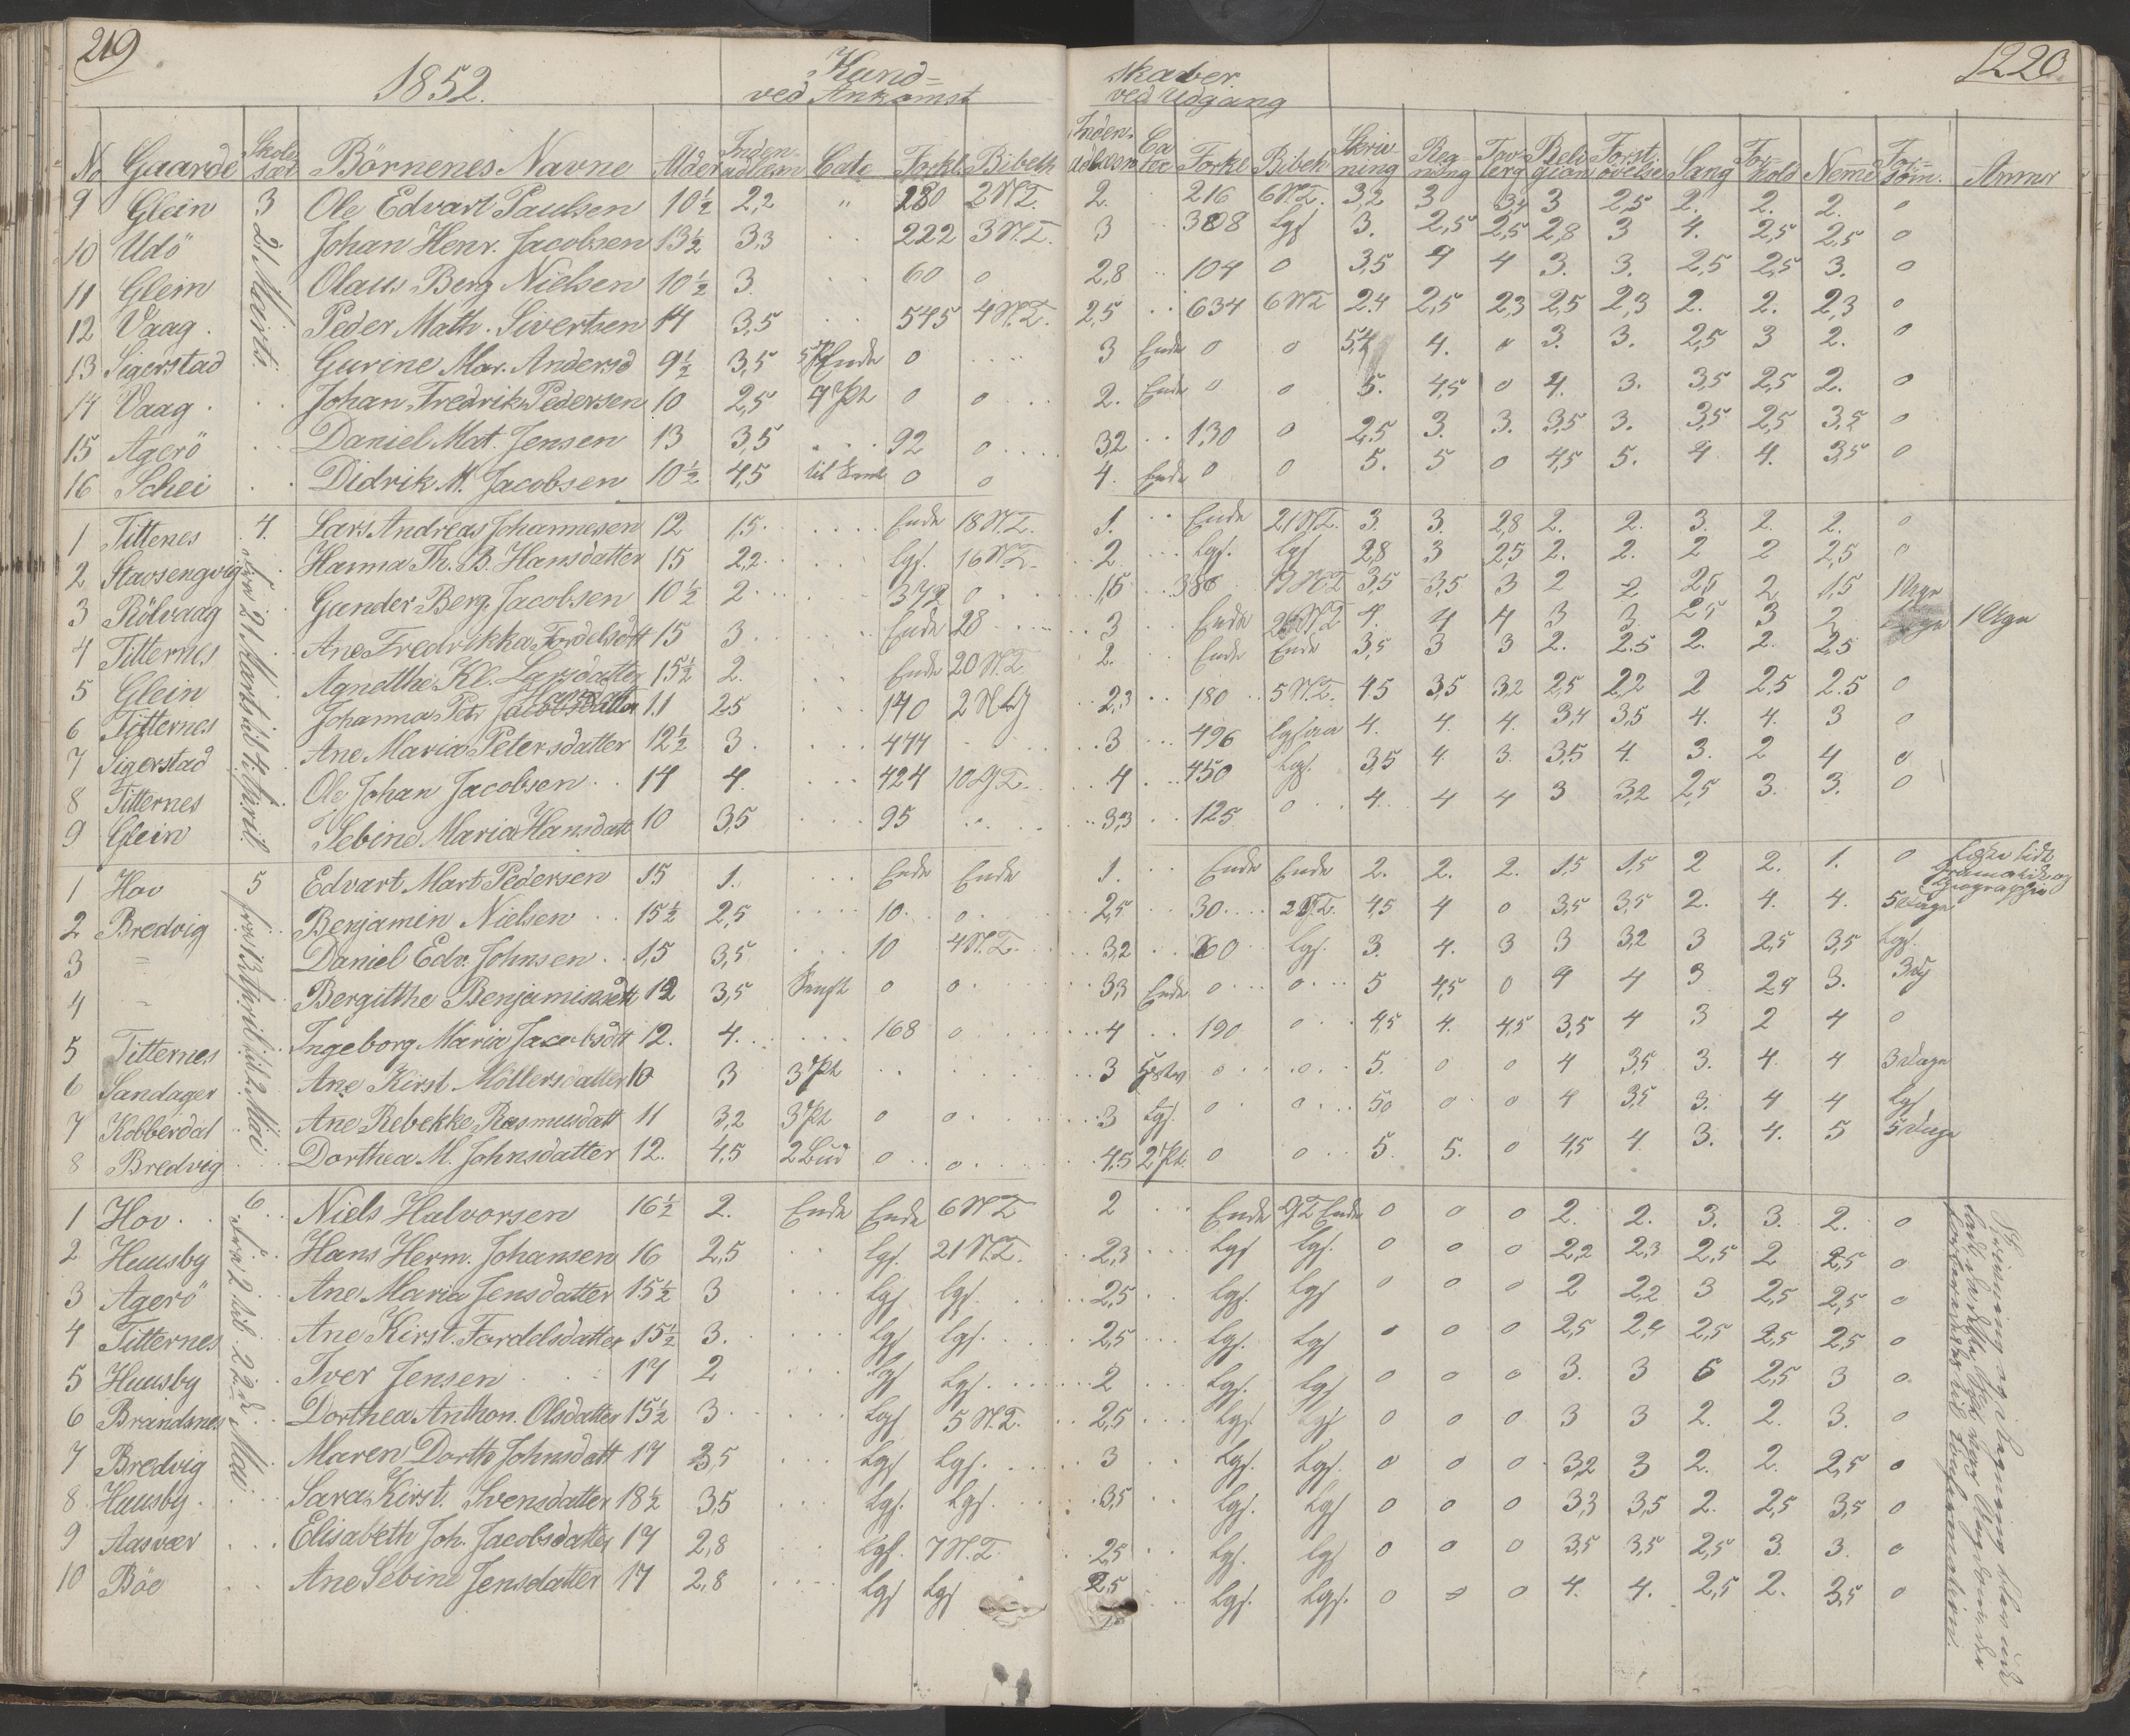 219
1220
1852.
Kund=
skaber
ved Ankomst
ved Udgang
No Gaarde Skole sæt Börnenes Navne Alder Inden adlæsn Cate Forkl. Bibelh Inden adlæsn Ca tec Forkl Bibelh Skriv ning Reg ning Tav lerg Reli gion Forst. övelse Sang For= hold Neme For= söm. Anmr
9 Glein 3 Ole Edvart Paulsen 10½ 2,2 " 280 2 N.T. 2. 216 6 N.T. 3,2 3 3,4 3 2,5 2. 2. 2. 0
10 Udö Johan Henr. Jacobsen 13½ 3,3 222 3 N.T. 3 308 Lgs 3. 2,5 2,5 2,8 3 4. 2,5 2,5 0
11 Glein Olaus Berg Nielsen 10½ 3. 60 0 2,8 104 0 3,5 4 4 3. 3. 2,5 2,5 3. 0
12 Vaag. Peder Math. Sivertsen 14 3,5 545 4 N.T. 2,5 634 6 N.T 2.4 2,5 2,3 2,5 2,3 2. 2. 2,3 0
13 Sigerstad Gurine Mar. Andersd 9½ 3,5 Ende 0 3 Ende 0 0 5,4 4. 0 3. 3. 2,5 3 2. 0
14 Vaag. Johan Fredrik Pedersen 10 2,5 4 Pt 0 0 2. Ende 0 0 5. 4,5 0 4. 3. 3,5 2,5 2. 0
15 Agerö Daniel Mat. Jensen 13 3,5 92 0 3,2 130 0 2,5 3. 3. 3,5 3. 3,5 2,5 3,2 0
16 Schei Didrik M. Jacobsen 10½ 4,5 til Ende 0 0 4. Ende 0 0 5. 5 0 4,5 5. 4 4. 3,5 0
1 Tittenes 4. Lars Andreas Johannesen 12 1,5. Ende 18 N.T. 1. Ende 21 N.T. 3. 3. 2,8 2. 2. 3. 2. 2. 0
2 Stavsengvig Hanna Th. B. Hansdatter 15 2,2 Lgs. 16 N.T. 2 Lgs. Lgs 2,8 3 2,5 2. 2. 2 2 2,5 0
3 Rölvaag Gander Berg. Jacobsen 10½ 2 372 0 1,5 386 19 N.T 3,5 3,5 3 2 2 2,5 2 1,5
4 Titternes Ane Fredrikka Fordelsdtt 15 3 Ende 28 3 Ende 4. 4 4 3 3. 2,5 3 2
5 Glein Agnetthe Kl. Larsdatter 15½ 2. Ende 20 N.T 2. Ende Ende 3,5 3 3 2. 2.5 2. 2. 2,5
6 Titternes Johanna Petr Hansdatter 11 2,5 140 2 2,3 180 5 N.T. 4,5 3,5 3,2 2,5 2,2 2 2,5 2.5 0
7 Sigerstad Ane Maria Petersdatter 12½ 3. 444 3 496 4. 4. 4. 3,4 3,5 4. 4. 3 0
8 Titternes Ole Johan Jacobsen 14 4. 424 10 G.T. 4 450 Lgs. 3,5 4. 3. 3,5 4. 3. 2 4 0
9 Glein Sebine Maria Hansdatt 10 3,5 95 3,3 125 0 4. 4 4 3 3,2 2,5 3. 3. 0
fra 21 Marts til 4. April.
1 Hov 5 Edvart Mart Pedersen 15 1. Ende Ende 1. Ende Ende 2. 2. 2. 1,5 1,5 2 2. 1. 0
2 Bredvig Benjamin Nielsen 15½ 2,5 10 0 2,5 30 4,5 4 0 3,5 3,5 2. 4. 4. 5 Dage
3 = Daniel Edv. Johnsen 15 3,5 10 4 N.T. 3,2 60 Lgs. 3. 4. 3 3 3,2 3 2,5 3,5 Lgs.
4 = Bergitthe Benjaminsdtt 12 3,5 0 0 3,3 Ende 0 0 5 4,5 0 4 4 3 2,9 3.
5 Titternes Ingeborg Maria Jacobsdtt 12. 4. 168 0 4 190 0 4,5 4. 4,5 3,5 4 3 2 4 0
6 Sandager Ane Kirst Möllersdatter 10 3 3 Pt 3 0 0 5. 0 0 4 3,5 3. 4. 4 3 Dage
7 Kobberdal Ane Rebekke Rasmusdatt 11 3,2 3 Pt 0 0 3 Lgs. 0 0 50 0 0 4 3,5 3. 4 4 Lgs
8 Bredvig Dorthea M. Johnsdatter 12. 4,5 2 Bud 0 0 4,5 2 Pt. 0 0 5. 5. 0 4,5 4. 3. 4. 5 5 Dage
fra 13 April til 2. Mai
1 Hov. 6 Niels Halvorsen 16½ 2. Ende Ende 6 N.T 2 Ende G.T Ende 0 0 0 2. 2. 3. 3. 2. 0
2 Huusby Hans Herm. Johansen 16 2,5 Lgs. 21 N.T. 2,3 Lgs Lgs. 0 0 0 2,2 2,3 2,5 2 2,5 0
3 Agerö Ane Maria Jensdatter 15½ 3 Lgs Lgs. 2,5 Lgs. Lgs 0 0 0 2 2,2 3 2,5 2,5 0
4 Titternes Ane Kirst. Fordelsdatter 15½ 3. Lgs Lgs. 2,5 Lgs. Lgs 0 0 0 2,5 2,4 2,5 2,5 2,5 0
5 Huusby Iver Jensen 17 2 Lgs Lgs. 2 Lgs. Lgs 0 0 0 3. 3 6 2,5 3 0
6 Brandsnes Dorthea Anthon. Olsdatter 15½ 3 Lgs 5 N.T. 2,5 Lgs Lgs 0 0 0 3 3 2. 2. 3. 0
7 Bredvig Maren Dorth Johnsdatt 17 3,5 Lgs Lgs. 3 Lgs. Lgs. 0 0 0 3,2 3 2. 2. 2,5 0
8 Huusby. Sara Kirst. Svensdatter 18½ 3,5 Lgs. Lgs. 3,5 Lgs. Lgs 0 0 0 3,3 3,5 2. 2,5 3,5 0
9 Aasvær Elisabeth Joh. Jacobsdatter 17 2,8 Lgs. 7 N.T. 2,5 Lgs. Lgs 0 0 0 3,5 3,5 2,5 3. 3. 0
10 Böe Ane Sebine Jensdatter 17 2,8 Lgs Lgs 2,5 Lgs. Lgs. 0 0 0 4. 4. 2,5 2. 3,5 0
fra 2 til 22de Mai